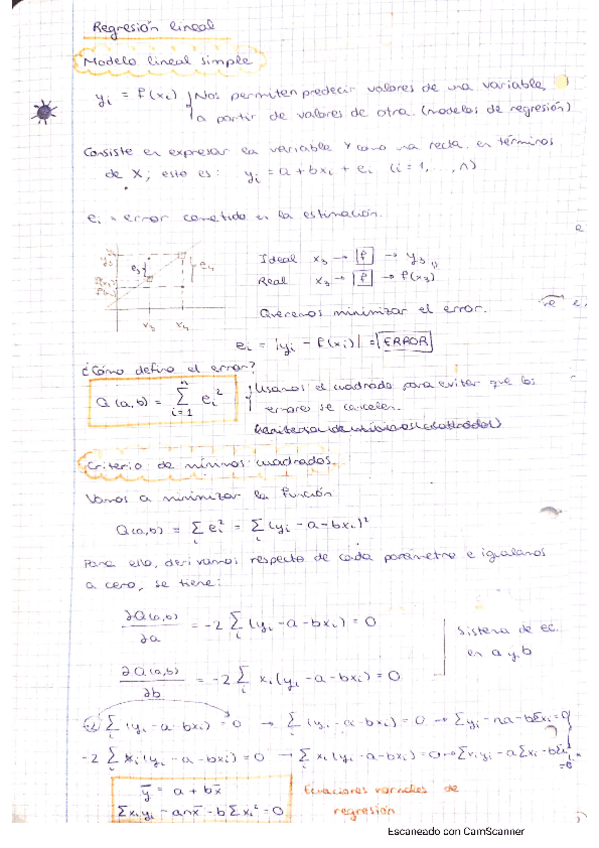 Regresión lineal
Modelo lineal simple
yᵢ = f(xᵢ) } Nos permiten predecir valores de una variable
a partir de valores de otra. (modelos de regresión)
Consiste en expresar la variable Y como una recta en términos
de X; esto es: yᵢ = a + bxᵢ + eᵢ (i = 1, ..., n)
eᵢ = error cometido en la estimación.
Ideal x₃ → [f] → y₃
Real x₃ → [f] → f(x₃)
e₃ e₄
x₃ x₄
Queremos minimizar el error.
eᵢ = |yᵢ - f(xᵢ)| = ERROR
¿Cómo defino el error?
Q(a,b) = Σⁿᵢ₌₁ eᵢ² } Usamos el cuadrado para evitar que los
errores se cancelen.
Criterio de mínimos cuadrados.
Vamos a minimizar la función
Q(a,b) = Σᵢ eᵢ² = Σᵢ (yᵢ - a - bxᵢ)²
Para ello, derivamos respecto de cada parámetro e igualamos
a cero, se tiene:
∂Q(a,b)/∂a = -2 Σᵢ (yᵢ - a - bxᵢ) = 0
Sistema de ec.
en a y b
∂Q(a,b)/∂b = -2 Σᵢ xᵢ(yᵢ - a - bxᵢ) = 0
-2 Σᵢ (yᵢ - a - bxᵢ) = 0 → Σᵢ (yᵢ - a - bxᵢ) = 0 → Σyᵢ - na - bΣxᵢ = 0
-2 Σᵢ xᵢ(yᵢ - a - bxᵢ) = 0 → Σᵢ xᵢ(yᵢ - a - bxᵢ) = 0 → Σxᵢyᵢ - aΣxᵢ - bΣxᵢ² = 0
ȳ = a + bx̄
Σxᵢyᵢ - anx̄ - bΣxᵢ² = 0
Ecuaciones normales de
regresión
Escaneado con CamScanner